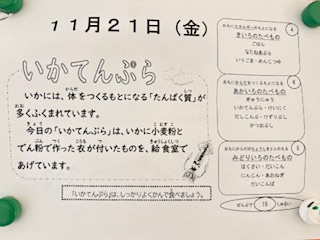 11月21日（金）
いかてんぷら
いかには、体をつくるもとになる「たんぱく質」が
多くふくまれています。
今日の「いかてんぷら」は、いかに小麦粉と
でん粉で作った衣が付いたものを、給食室で
あげています。
「いかてんぷら」は、しっかりよくかんで食べましょう。
おもにエネルギーのもとになる
きいろのたべもの
ごはん
なたねあぶら
いりごま・めんじつゆ
おもにからだをつくるもとになる
あかいろのたべもの
ぎゅうにゅう
いかてんぷら・けいにく
だしこんぶ・けずりぶし
かつおぶし
おもにからだのちょうしをととのえる
みどりいろのたべもの
はくさい・だいこん
にんじん・あおねぎ
だいこんば
ぜんぶで 15 しゅるい